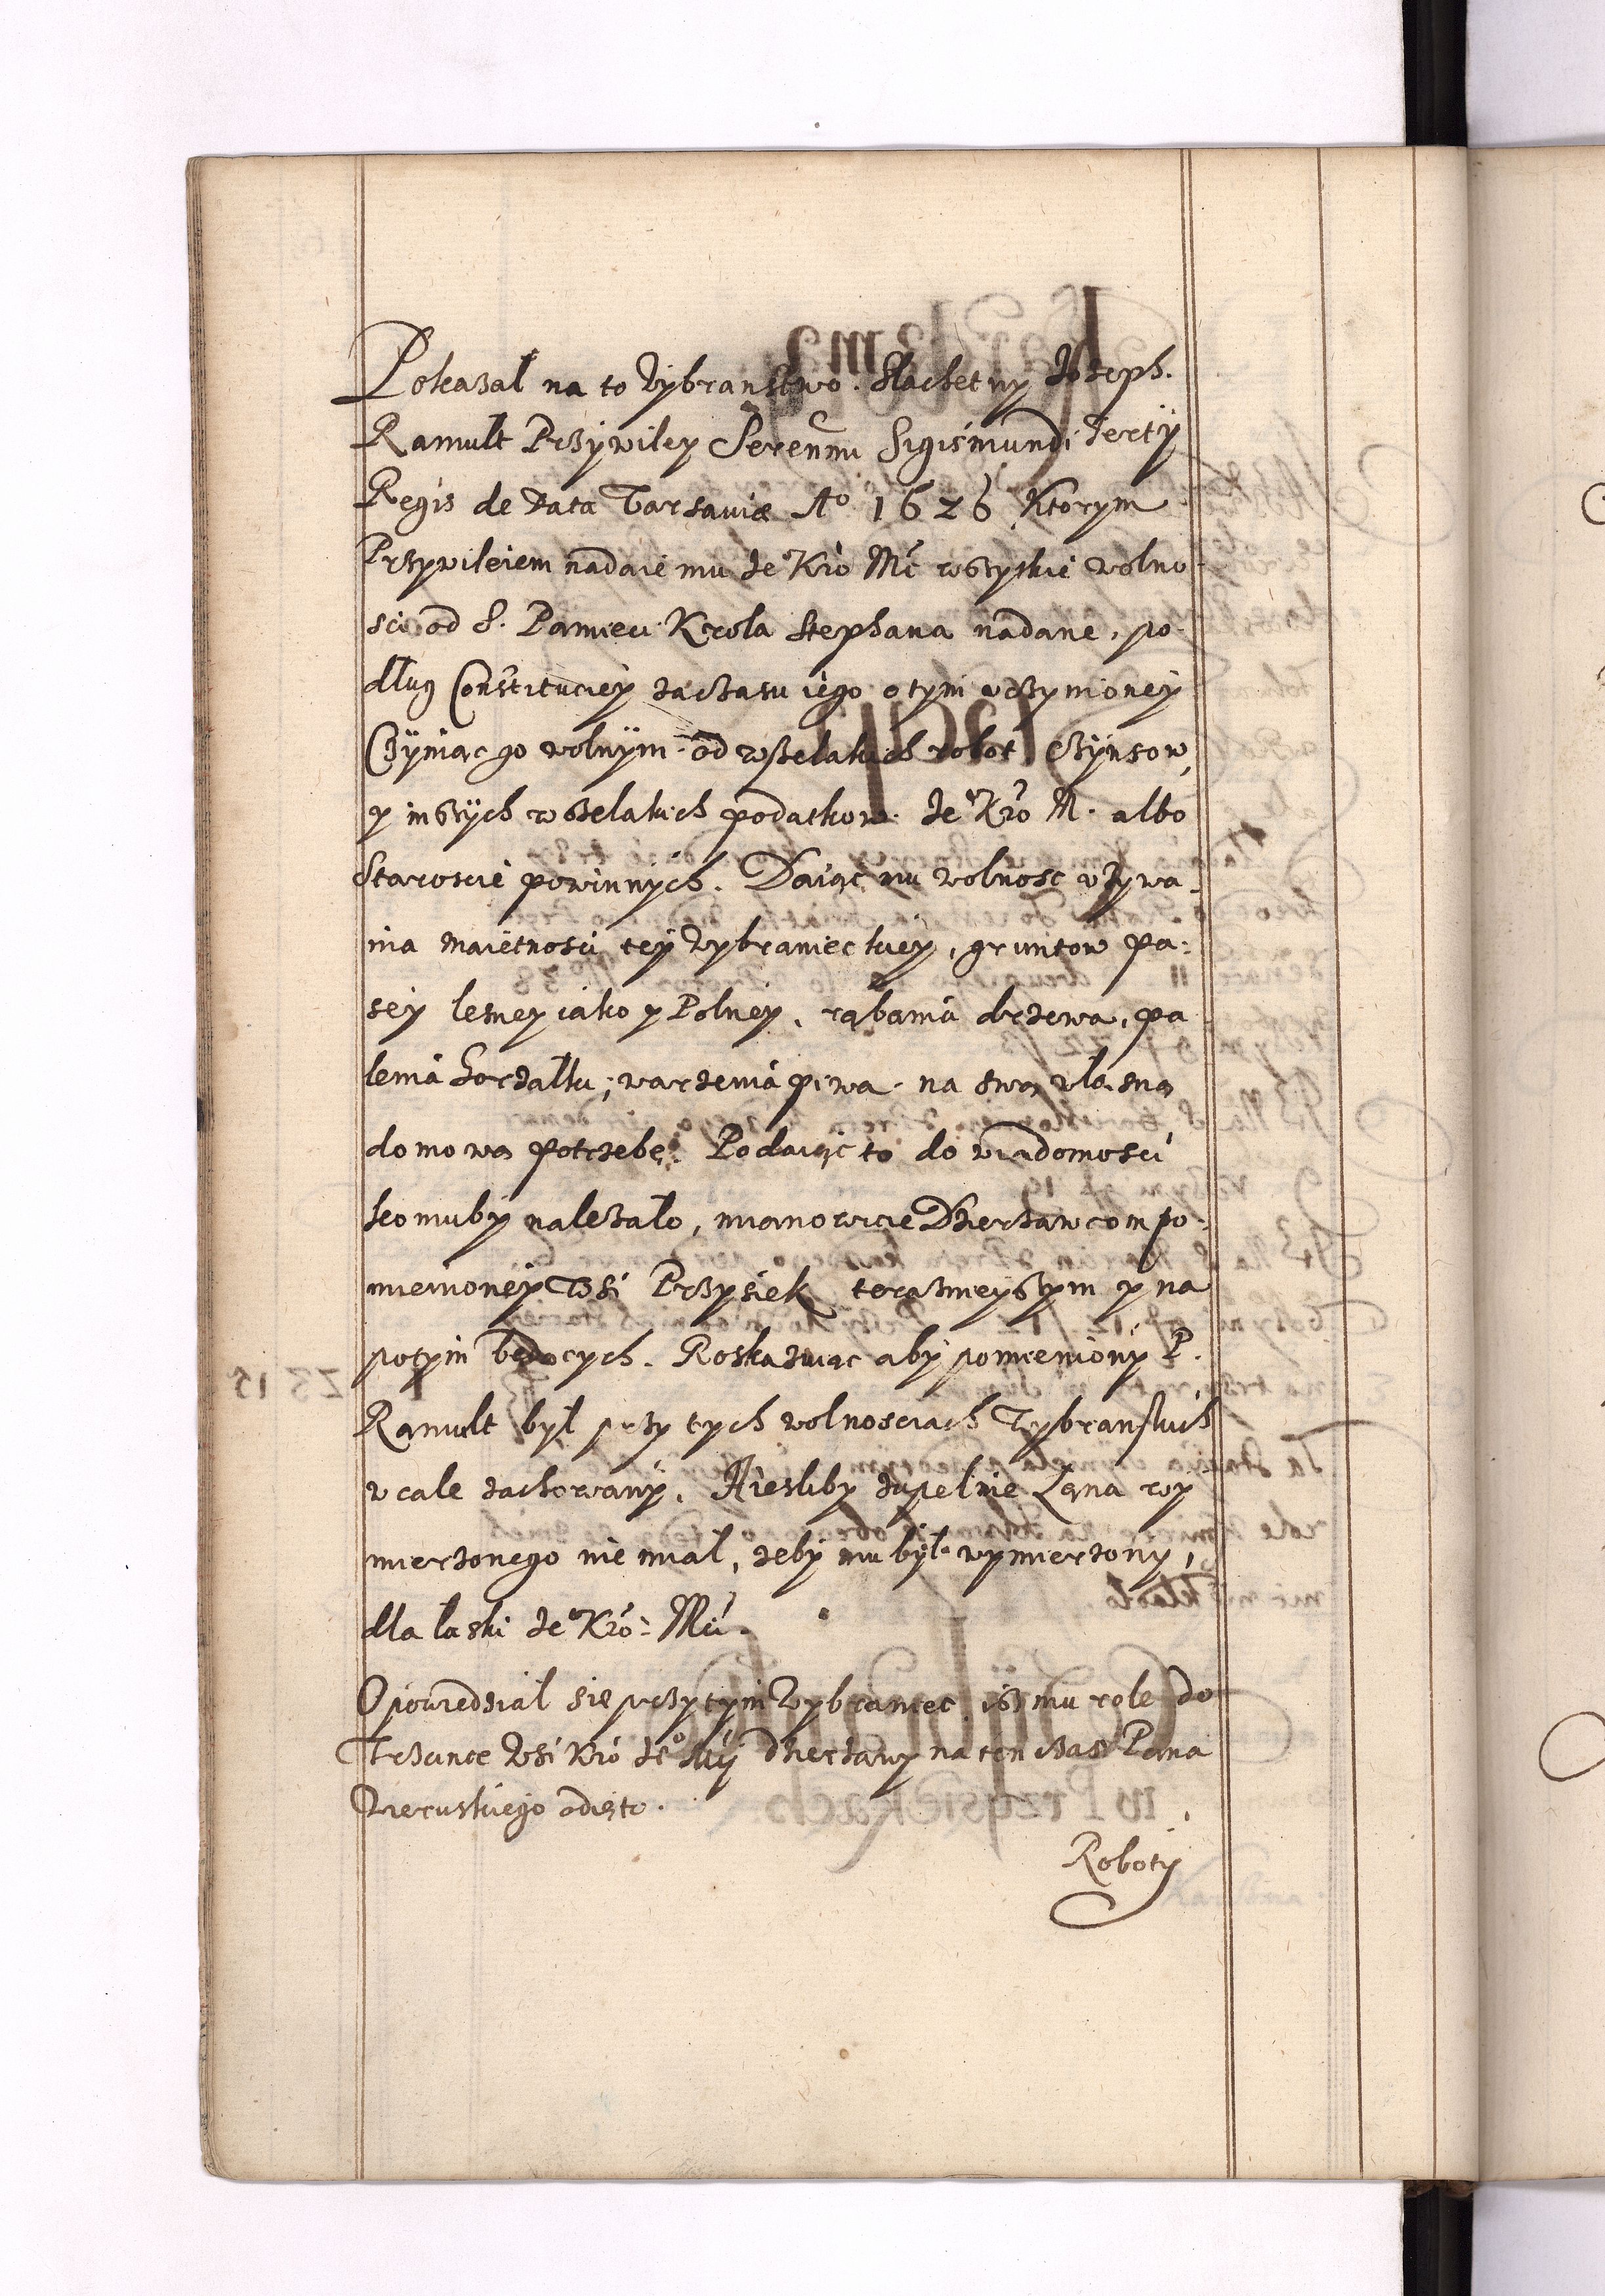 Pokazal na to Wybranstwo. Slachetny Joseph.
Ramult Przywiley Serenmi Sigismundi Tertÿ
Regis de data Varsaviæ Aº 1626 Ktorym
Przywileiem nadaie mu Jeº Kró Mć wszystkie wolno
sci od S. Pamieci Krola Stephana nadane, po
dlug Constituciey zaczasu iego o tym uczynioney
Czyniąc go wolnÿm od wszelakich robot Czÿnsow,
y inszÿch wszelakich podatkow. Jeº Kró M. albo
Staroscie powinnÿch. Daiąc mu wolnosc uzywa
nia maietnosci teÿ Wybranieckieÿ, gruntow pa:
seÿ lesney iako y Polneÿ, rąbania drzewa, pa
lenia horzalku, warzenia piwa na swą wlasną
domową potrzebę. Podaiąc to do wiadomosci
komubÿ nalezalo, mianowicie Dzierzawcom po
mienioneÿ Wsi Przysiek terazmieyszym y na
potÿm będących. Roskazuiąc abÿ pomieniony P.
Ramult bÿl przy tych wolnosciach Wybranskich
w cale zachowanÿ, A iesliby zupelnie Łana wÿ
mierzonego nie mial, zebÿ mu bÿl wymierzony,
dla laski Jeº Kró: Mći.
Opowiedzial się przy tÿm Wybraniec, isz mu role do
Trzunce Wsi Kró Jeº Mći dzierzawy na ten czas Pana
Wieruskiego odięto.
Robotÿ